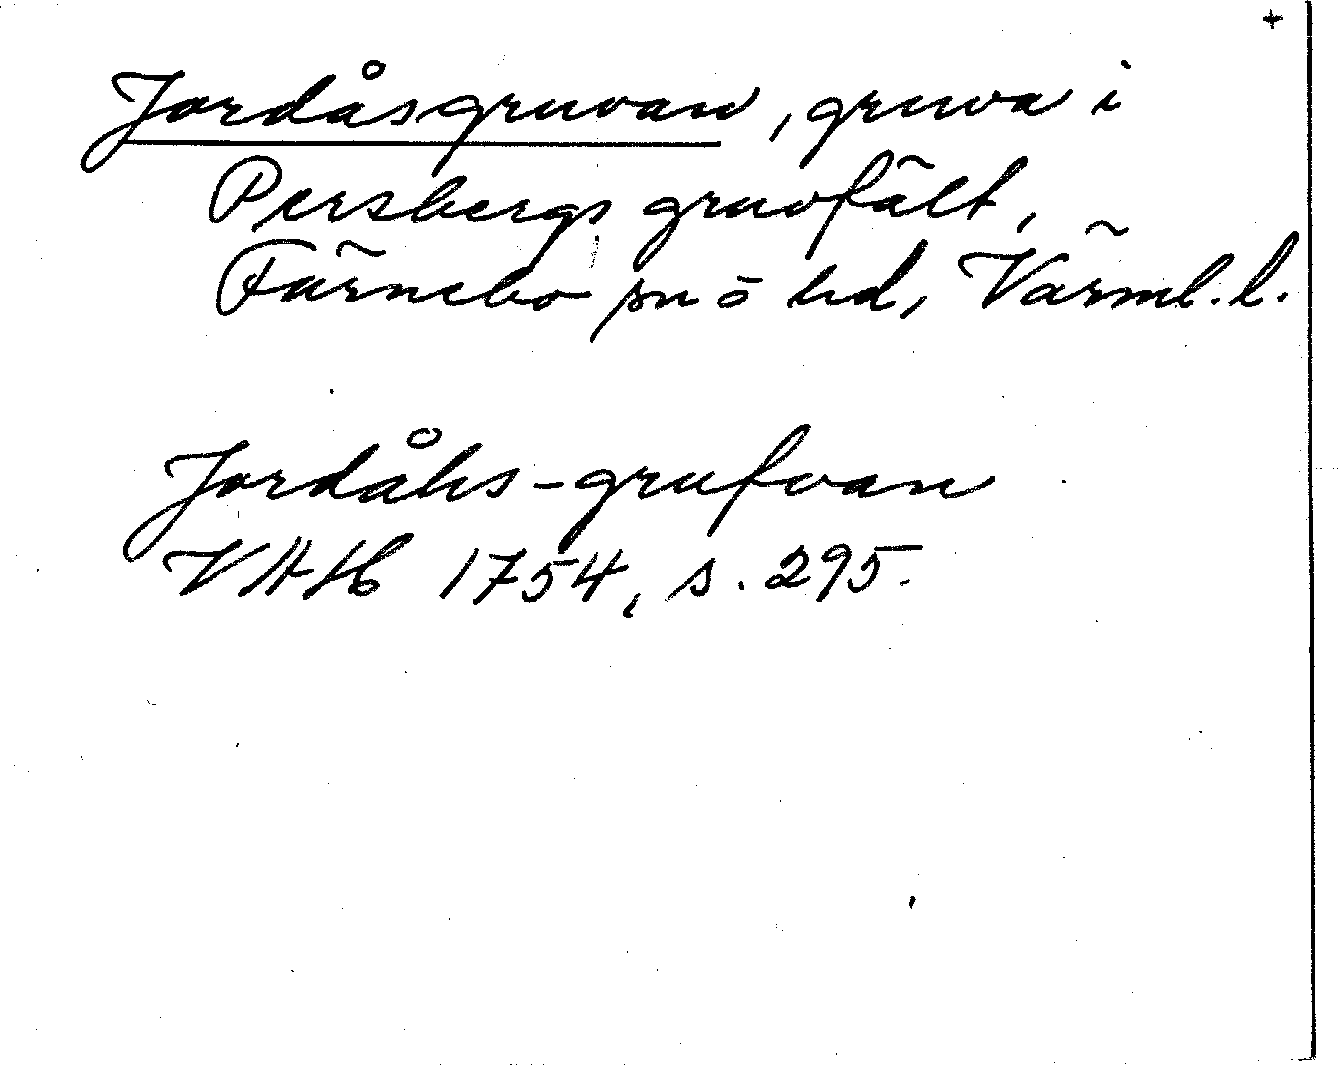 +
Jordåsgruvan, gruva i
Persbergs gruvfält,
Färnebo sn o hd, Värml. l.
Jordåhs-grufvan
VAH 1754, s. 295.